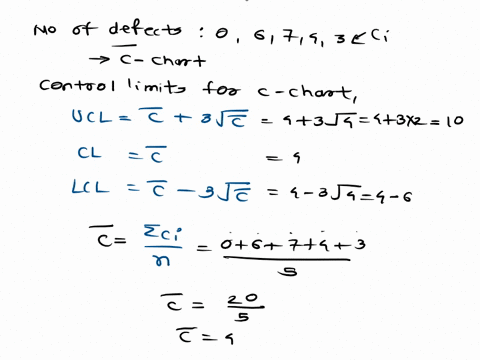 No of defects : 0, 6, 7, 4, 3 ↙ Ci
→ C̅ - chart
Control limits for c-chart,
UCL = C̅ + 3√C̅ = 4+3√4 = 4+3x2 = 10
CL = C̅ = 4
LCL = C̅ - 3√C̅ = 4-3√4 = 4-6
C̅ = ΣCi/n = 0+6+7+4+3/5
C̅ = 20/5
C̅ = 4